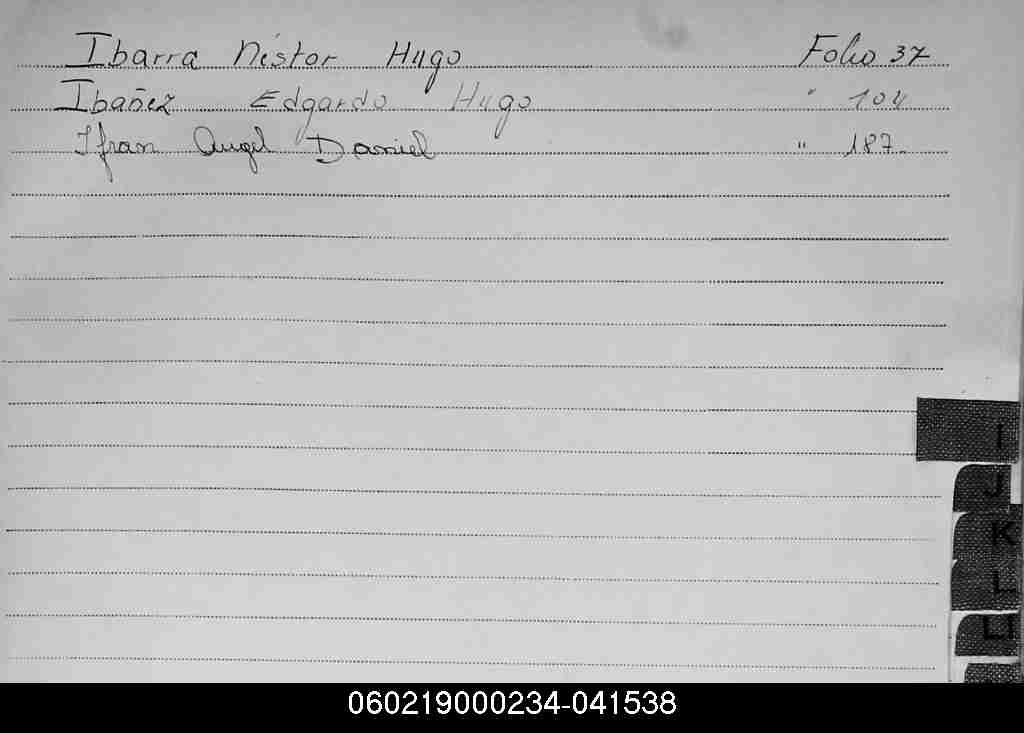 Ibarra Néstor Hugo Folio 37
Ibañez Edgardo Hugo " 104
Ifran Angel Daniel " 187
I
J
K
L
Ll
060219000234-041538